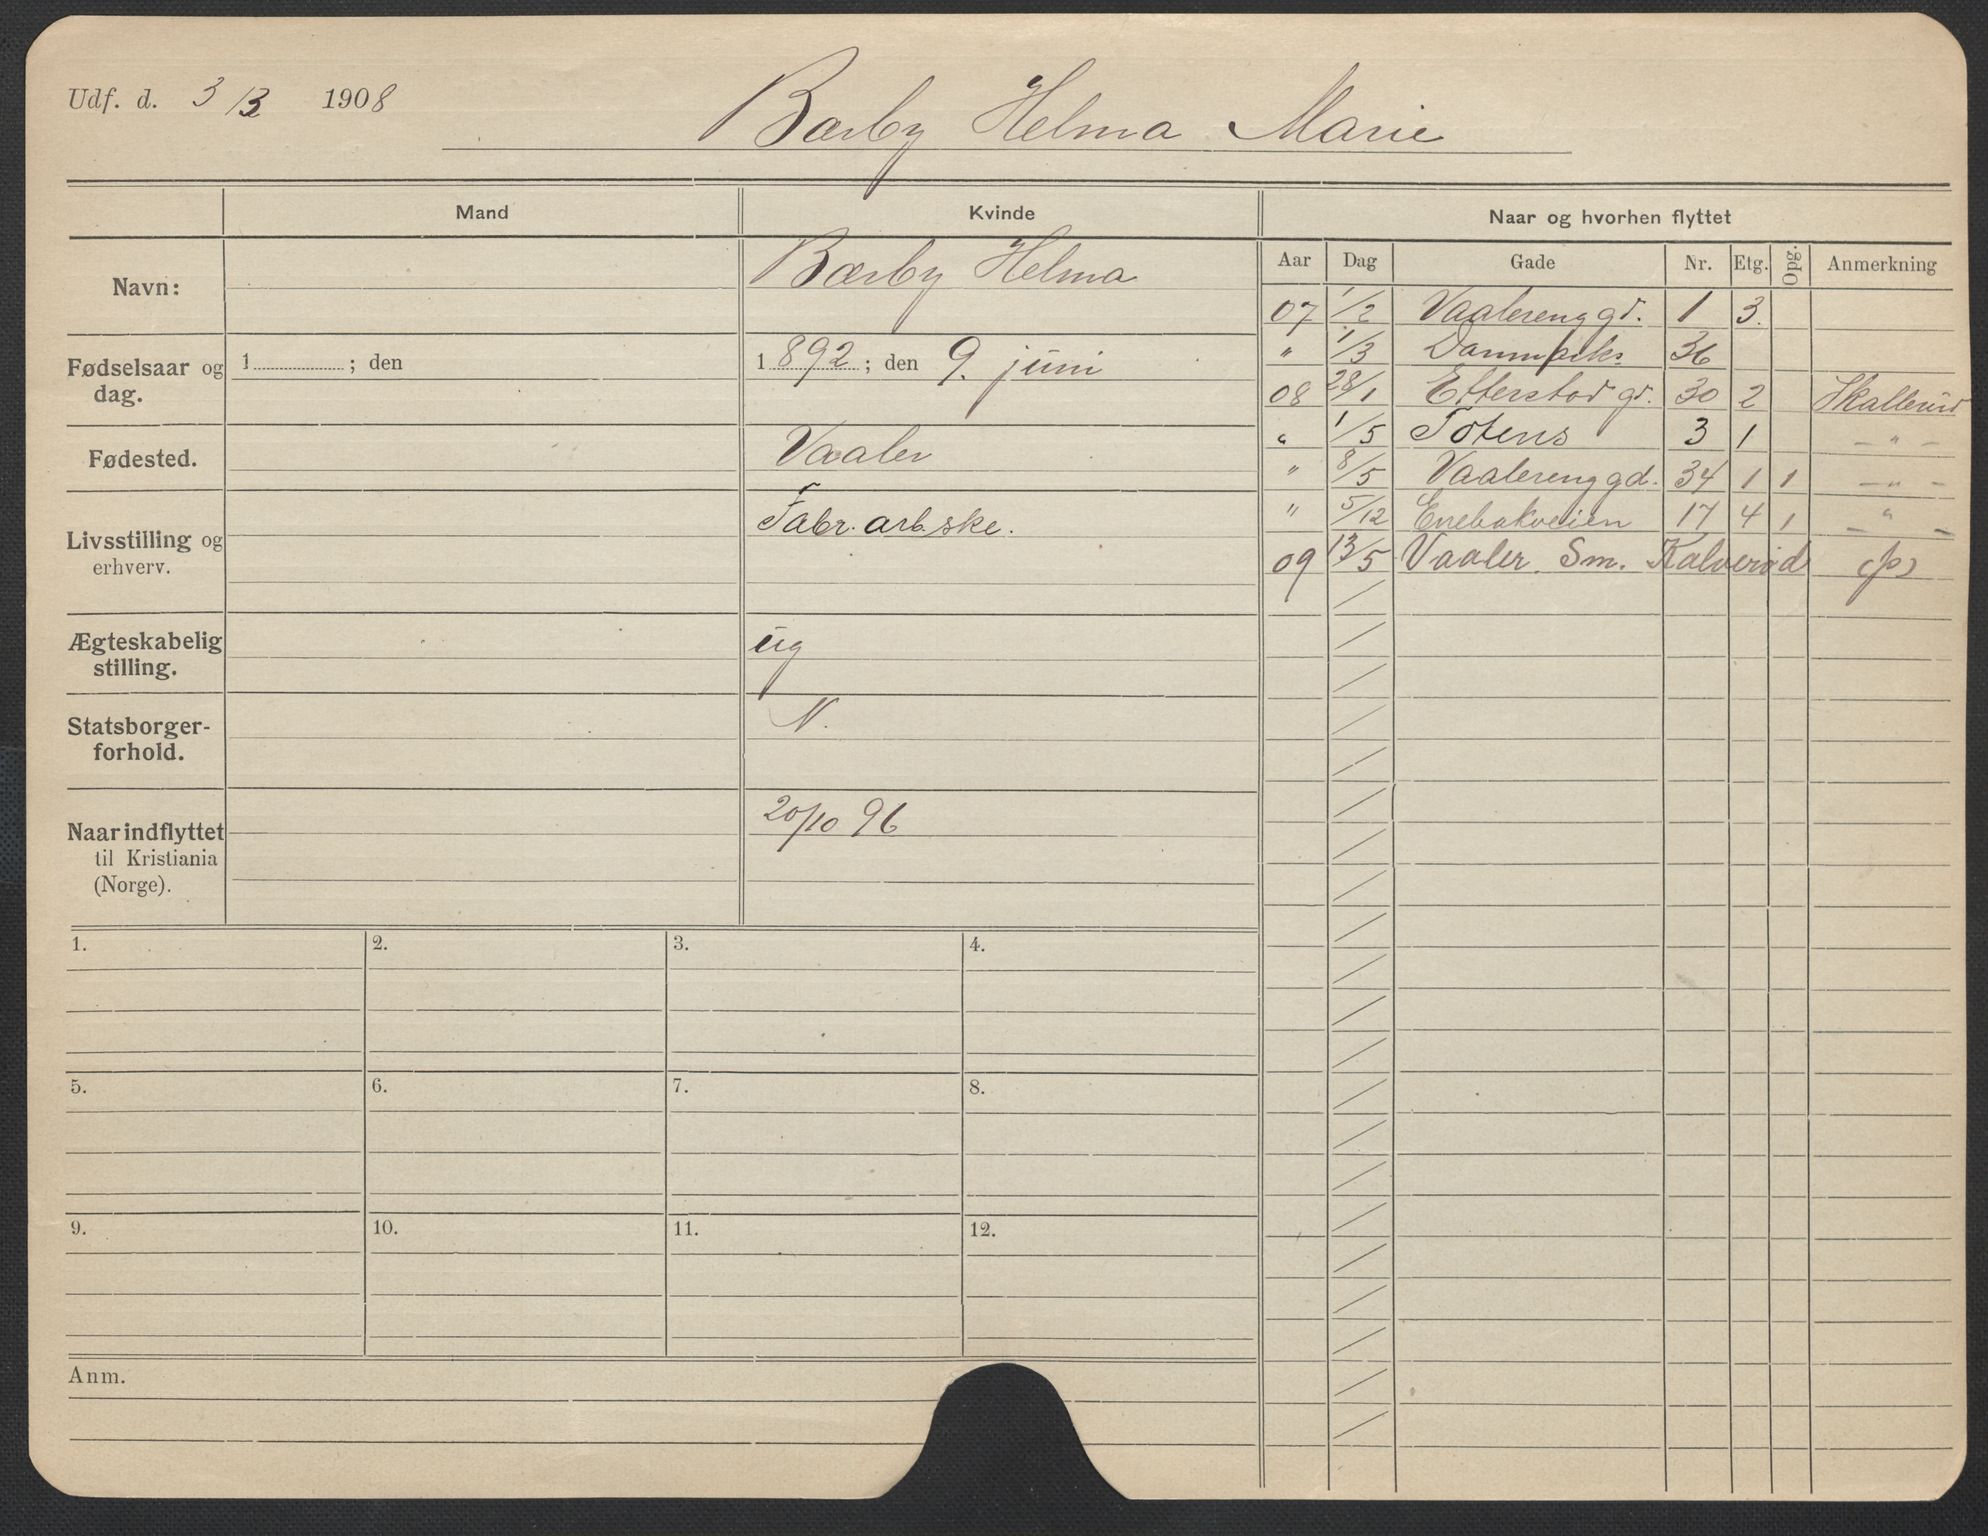 Udf. d. 3/12 1908
Bærby Helma Marie
Mand Kvinde Naar og hvorhen flyttet
Aar Dag Gade Nr. Etg. Opg. Anmerkning
Navn: Bærby Helma
Fødselsaar og dag. 1 ; den 1892 ; den 9. juni
Fødested. Vaaler
Livsstilling og erhverv. Fabr. arb.ske.
Ægteskabelig stilling. ug
Statsborger-forhold. N.
Naar indflyttet til Kristiania (Norge). 20/10 96
07 1/2 Vaalerenggd. 1 3.
" 1/3 36
08 28/1 Etterstadgd. 30 2 Skallerud
" 1/5 Totens 3 1 - " -
" 8/5 Vaalerenggd. 34 1 1 - " -
" 5/12 Enebakveien 17 4 1 - " -
09 13/5 Vaaler Sm. Kalverød (p)
1. 2. 3. 4.
5. 6. 7. 8.
9. 10. 11. 12.
Anm.